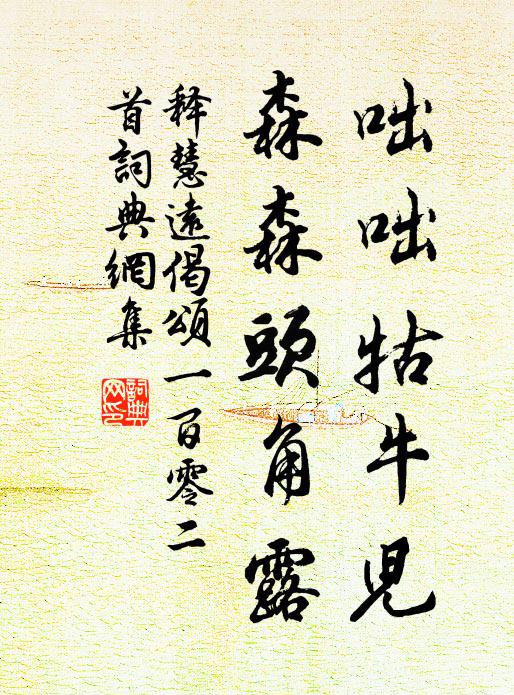 咄咄牯牛児
森森頭角露
释慧遠偈頌一百零二
首詞典網集
詞典
网印